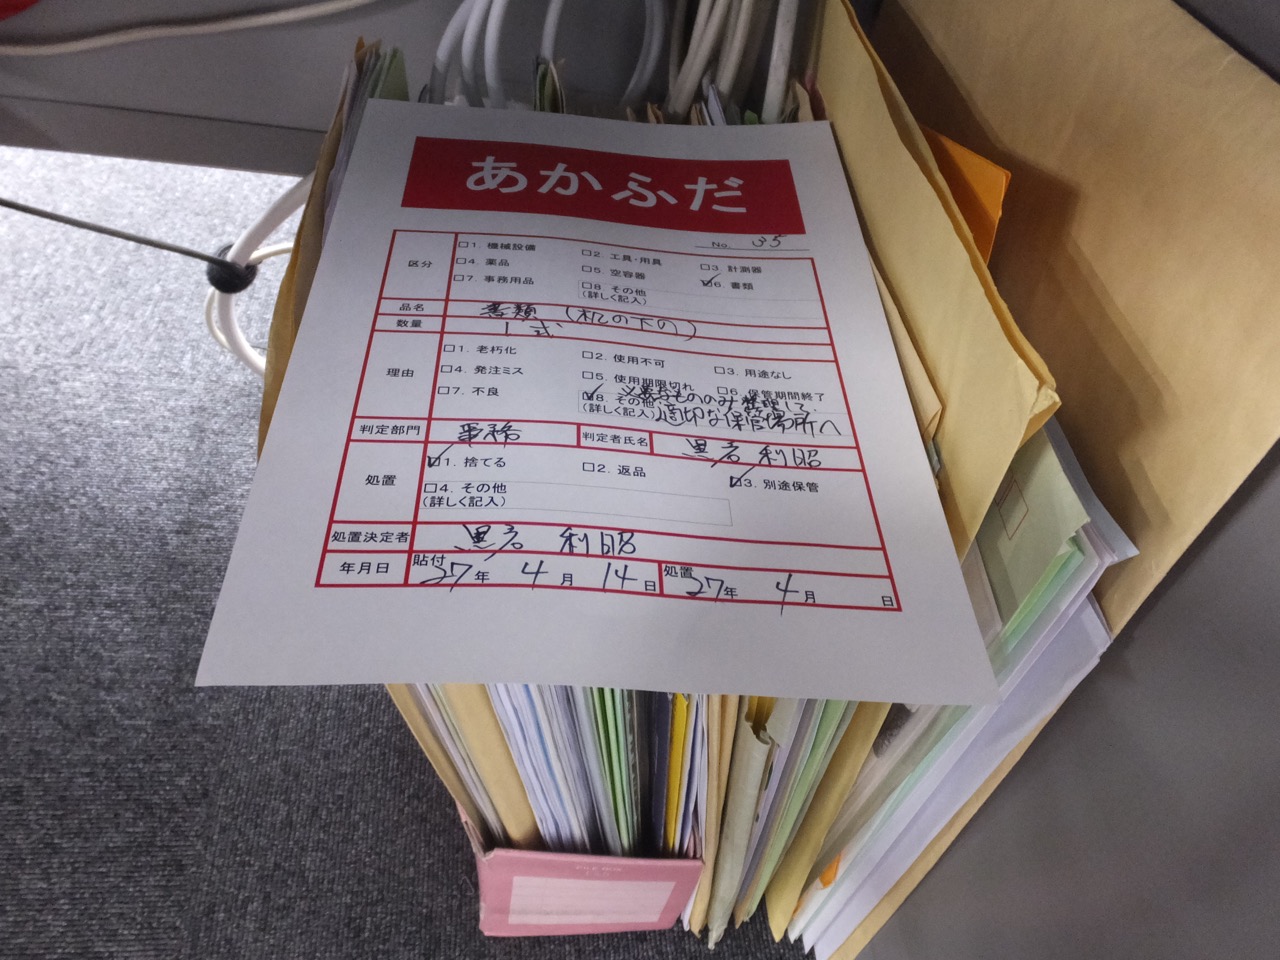 あかふだ
No. 35
区分
□1. 機械設備 □2. 工具・用具 □3. 計測器
□4. 薬品 □5. 空容器 ☑6. 書類
□7. 事務用品 □8. その他
(詳しく記入)
品名 書類 (机の下の)
数量 1式
理由
□1. 老朽化 □2. 使用不可 □3. 用途なし
□4. 発注ミス □5. 使用期限切れ □6. 保管期間終了
□7. 不良 ☑8. その他 必要なもののみ整理して、
(詳しく記入) 適切な保管場所へ
判定部門 業務 判定者氏名 黒彦 利昭
処置
☑1. 捨てる □2. 返品 ☑3. 別途保管
□4. その他
(詳しく記入)
処置決定者 黒彦 利昭
年月日 貼付 27年 4月 14日 処置 27年 4月 日